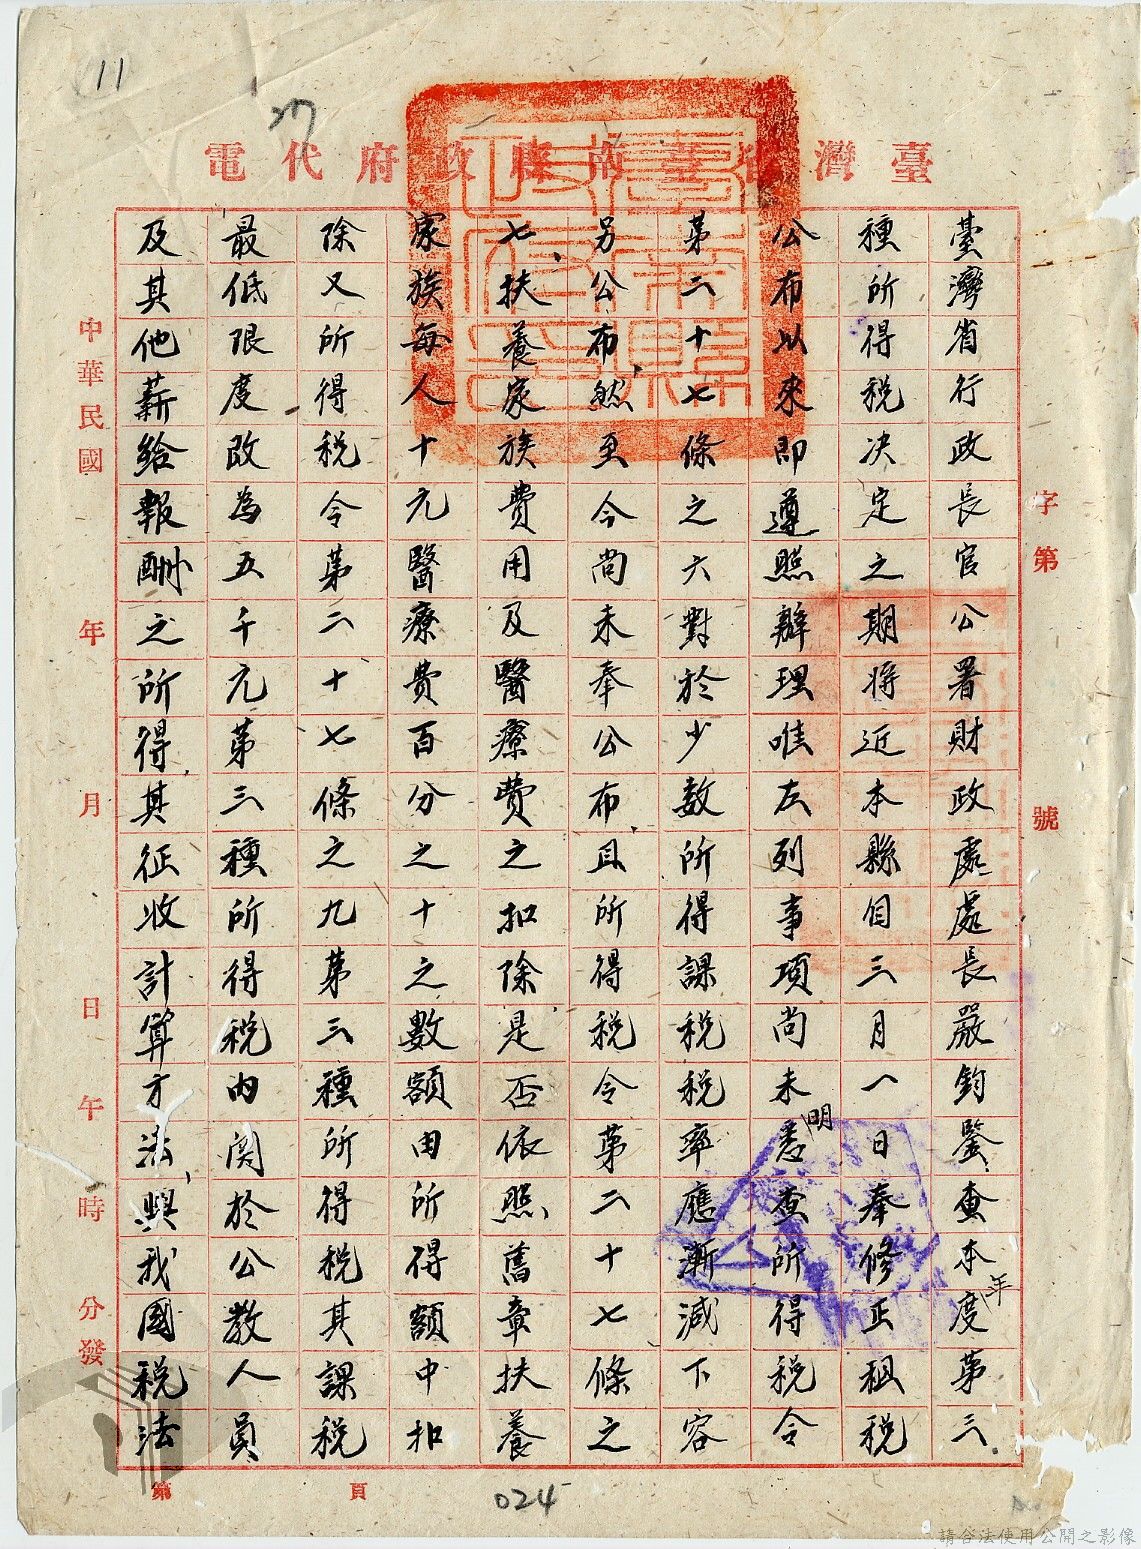 11
臺灣省臺南縣政府代電
字第 號
臺灣省行政長官公署財政處處長嚴鈞鑒查本年度第三
種所得稅決定之期將近本縣自三月一日奉修正租稅
公布以來即遵照辦理唯左列事項尚未明悉查所得稅令
第二十七條之六對於少数所得課稅稅率應漸減下容
另公布,然至今尚未奉公布,且所得稅令第二十七條之
七、扶養家族費用及醫療費之扣除是否依照舊章扶養
家族每人十元醫療費百分之十之數額由所得額中扣
除又所得稅令第二十七條之九第三種所得稅其課稅
最低限度改為五千元第三種所得稅內関於公教人員
及其他薪給報酬之所得,其征收計算方法,與我國稅法
中華民國 年 月 日 午 時 分發
第 頁
024
請合法使用公開之影像